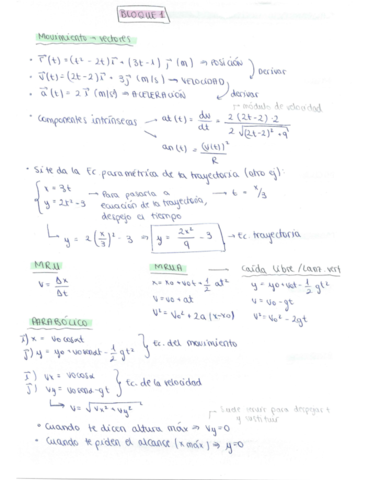 BLOQUE 1
Movimiento → vectores
• r⃗ (t) = (t² - 2t) i⃗ + (3t - 1) j⃗ (m) → POSICIÓN
• v⃗ (t) = (2t - 2) i⃗ + 3 j⃗ (m/s) → VELOCIDAD
derivar
• a⃗ (t) = 2 i⃗ (m/s) → ACELERACIÓN
derivar
módulo de velocidad
• Componentes intrínsecas → at(t) = dv/dt = 2(2t-2)·2 / 2√(2t-2)² + 9
an(t) = (v(t))² / R
• Si te da la Ec paramétrica de la trayectoria (otro ej):
x = 3t
y = 2t² - 3
→ Para pasarla a ecuación de la trayectoria, despejo el tiempo → t = x/3
y = 2 (x/3)² - 3 ⇒ y = 2x²/9 - 3 → Ec. trayectoria
MRU
v = Δx/Δt
MRUA
x = x0 + v0t + 1/2 at²
v = v0 + at
v² = v0² + 2a (x-x0)
Caída libre / Lanz. vert
y = y0 + v0t - 1/2 gt²
v = v0 - gt
v² = v0² - 2gt
PARABÓLICO
i⃗) x = v0 cosα t
j⃗) y = y0 + v0 senα t - 1/2 gt²
Ec. del movimiento
i⃗) vx = v0 cosα
j⃗) vy = v0 senα - gt
Ec. de la velocidad
v = √vx² + vy²
Suele valer para despejar t y sustituir
• Cuando te dicen altura máx ⇒ vy = 0
• Cuando te piden el alcance (x máx) ⇒ y = 0